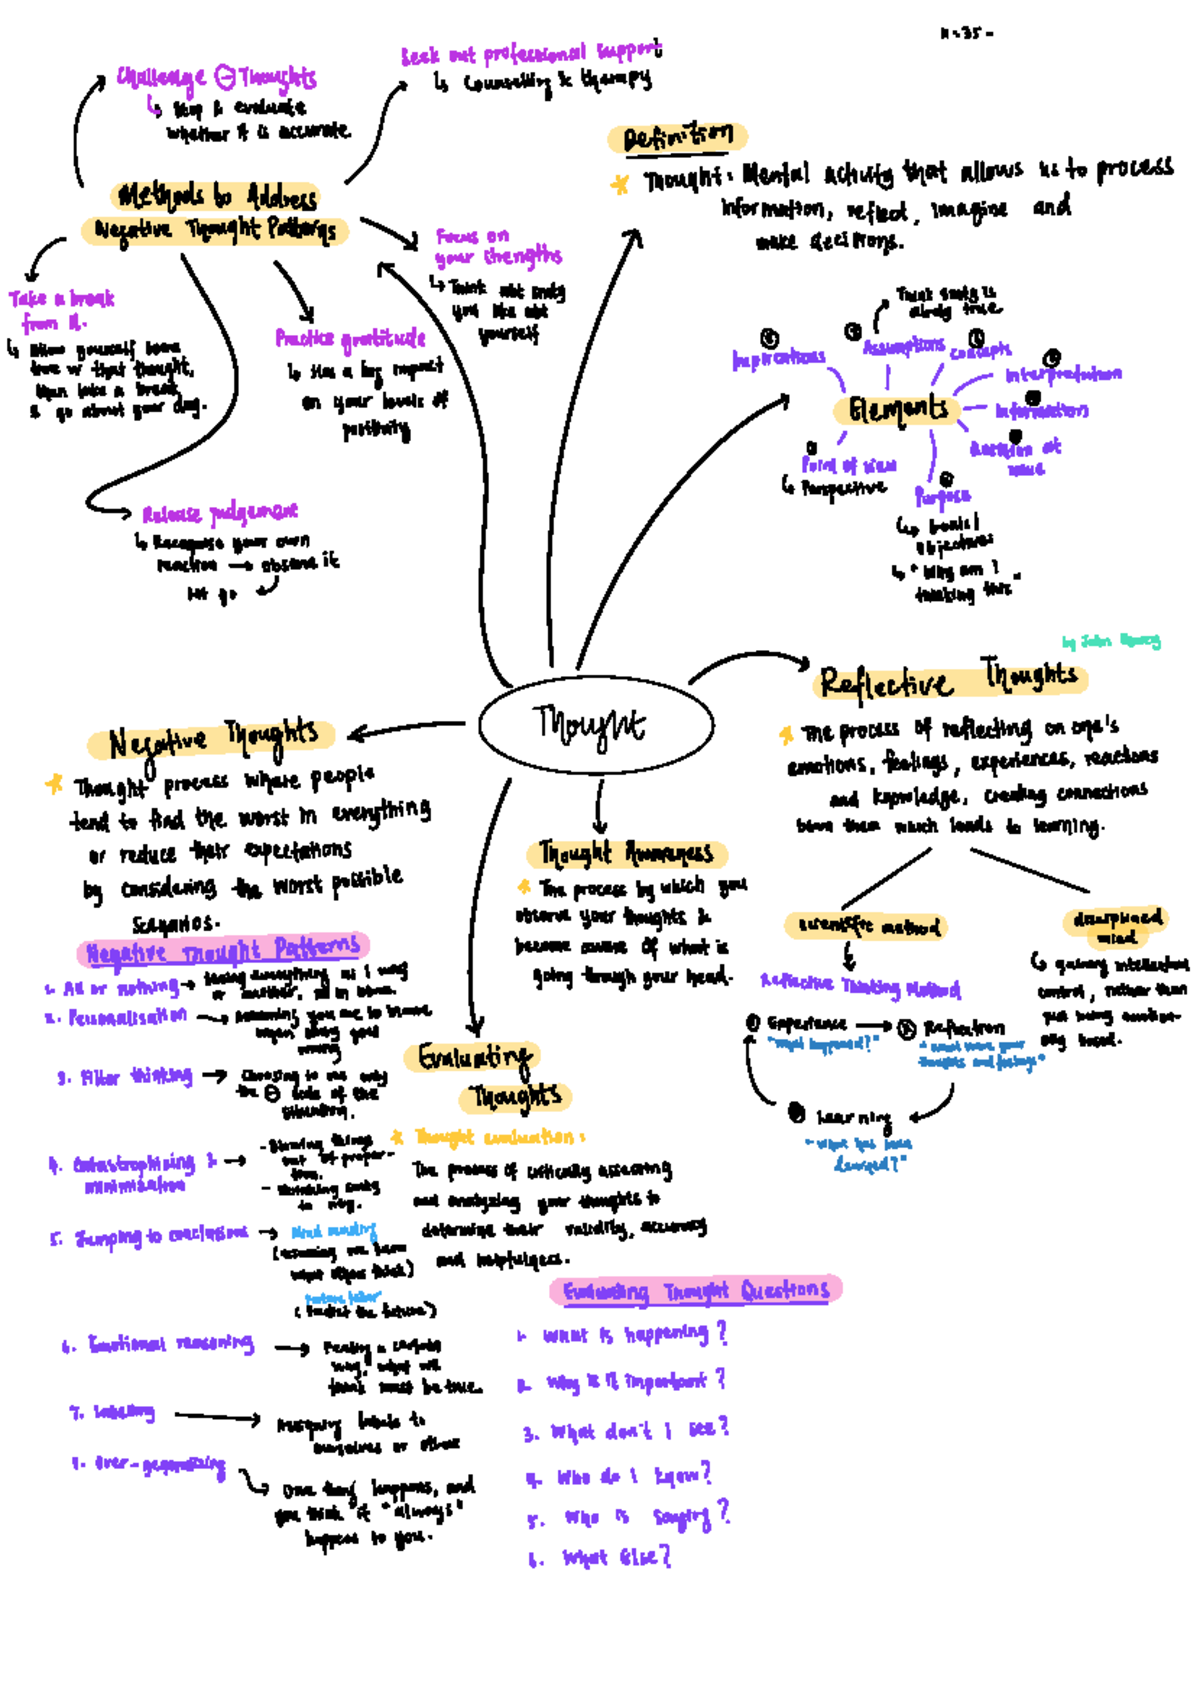 Seek out professional support
↳ Counselling & therapy
Challenge ⊖ Thoughts
↳ Stop & evaluate
whether it is accurate.
Methods to Address
Negative Thought Patterns
Take a break
from it.
↳ Allow yourself some
time w that thought,
then take a break
& go about your day.
Practice gratitude
↳ Has a big impact
on your levels of
positivity
Focus on
your strengths
↳ Think abt
you like abt
yourself
Release judgement
↳ Recognise your own
reaction → observe it
let go
Definition
Thought: Mental activity that allows us to process
information, reflect, imagine and
make decisions.
Think is
already true
Implications
Assumptions
Concepts
Interpretation
Information
Question at
issue
Elements
Point of view
↳ Perspective
Purpose
↳ Goals /
objectives
↳ "Why am I
thinking this"
Thought
by John
Reflective Thoughts
The process of reflecting on one's
emotions, feelings, experiences, reactions
and knowledge, creating connections
btwn them which leads to learning.
Scientific method
Reflective Thinking Method
① Experience → ② Reflection
"What happened?"
"What were your
thoughts and feelings"
Learning
"What has been
learned?"
disciplined
mind
↳ gaining intellectual
control, rather than
just being emotion-
ally based.
Negative Thoughts
Thought process where people
tend to find the worst in everything
or reduce their expectations
by considering the worst possible
scenarios.
Negative Thought Patterns
1. All or nothing → Seeing everything as 1 way
or another, no in btwn.
2. Personalisation → Assuming you are to blame
when things go
wrong
3. Filter thinking → Choosing to see only
the ⊖ side of the
situation.
4. Catastrophising &
minimisation
→ - Blowing things
out of propor-
tion.
- Shrinking
5. Jumping to conclusions → Mind reading
(assuming we know
what others think)
Future teller
(Predict the future)
6. Emotional reasoning → Feeling a certain
way, what we
think must be true.
7. Labelling → Assigning labels to
ourselves or others
Over-generalising
One thing happens, and
you think it "always"
happens to you.
Thought Awareness
The process by which you
observe your thoughts &
become aware of what is
going through your head.
Evaluating
Thoughts
Thought evaluation:
The process of critically assessing
and analyzing your thoughts to
determine their validity, accuracy
and helpfulness.
Evaluating Thought Questions
1. What is happening?
2. Why is it important?
3. What don't I see?
4. Who do I know?
5. Who is saying?
6. What else?